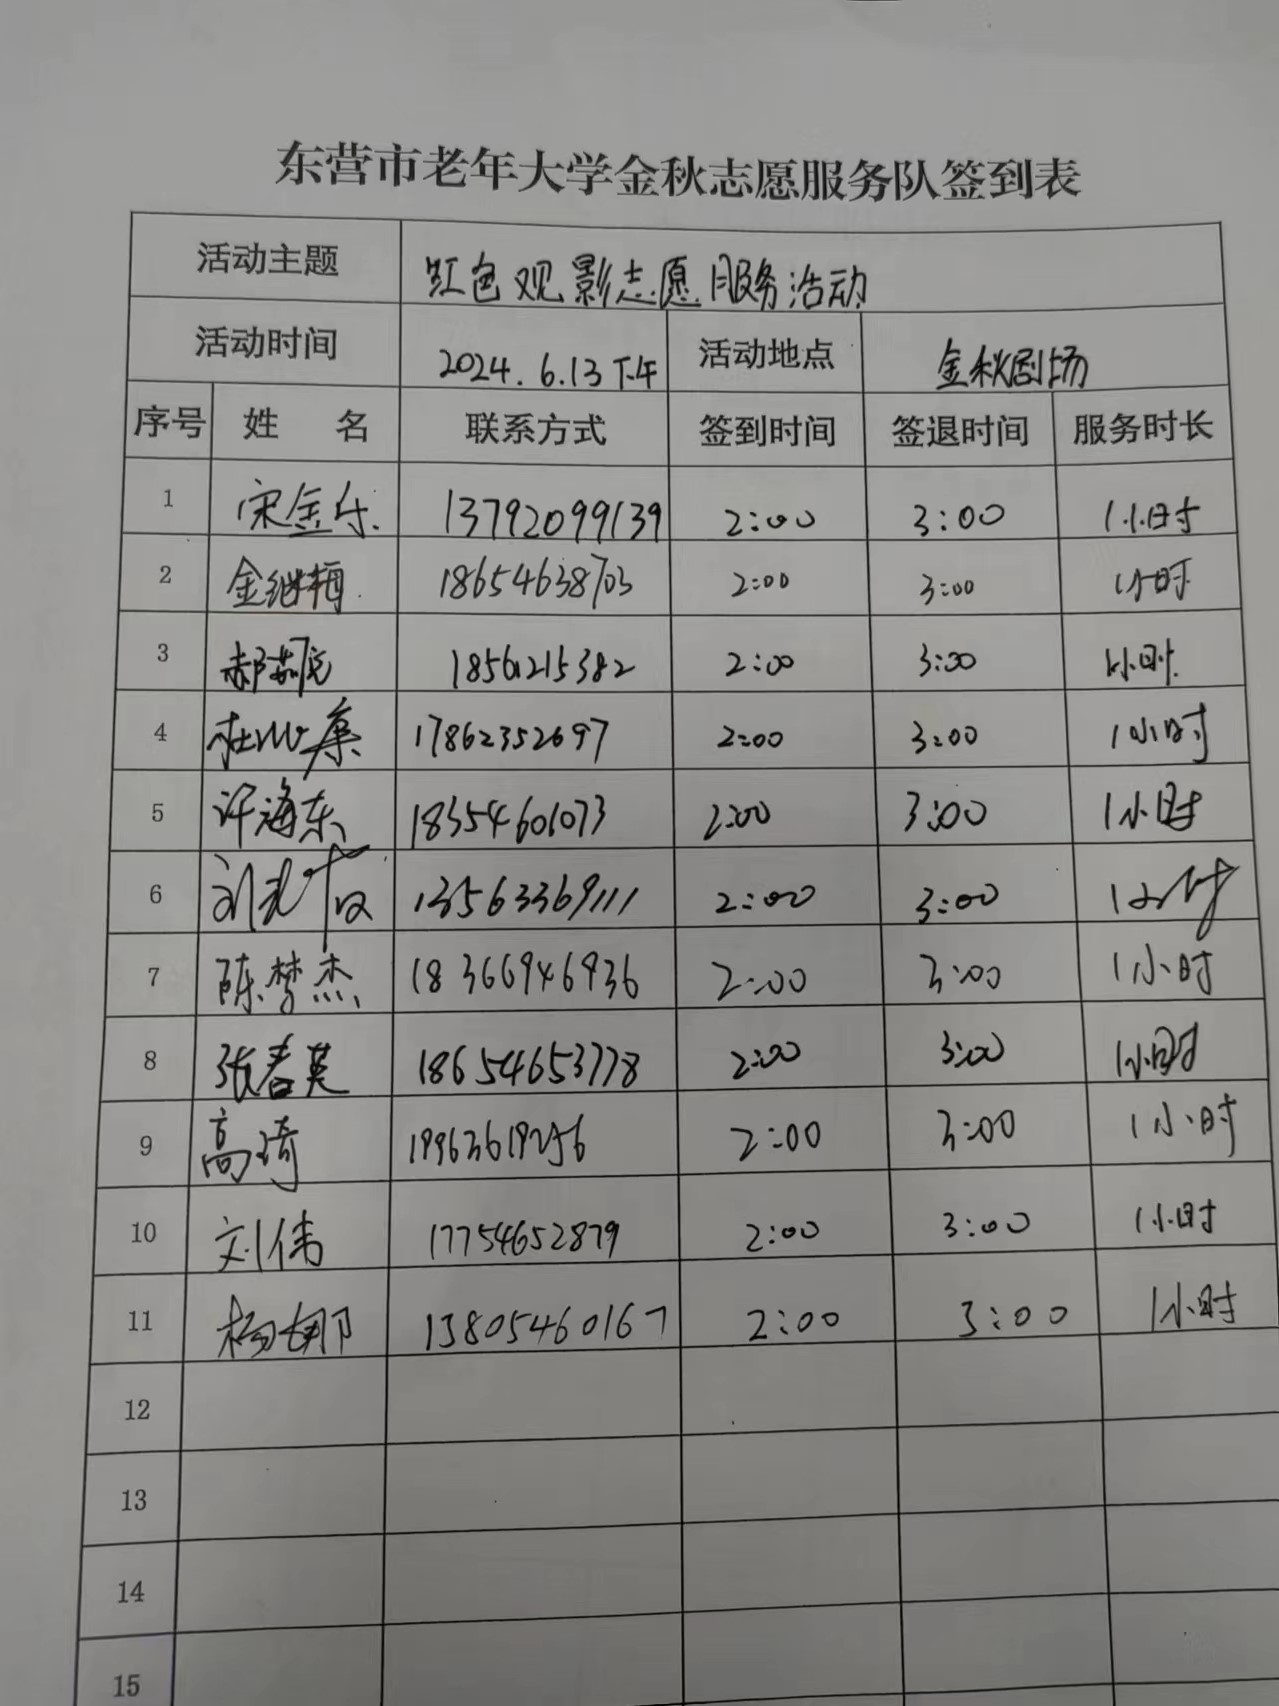 东营市老年大学金秋志愿服务队签到表
活动主题 红色观影志愿服务活动
活动时间 2024.6.13下午 活动地点 金秋剧场
序号 姓 名 联系方式 签到时间 签退时间 服务时长
1 宋金乐 13792099139 2:00 3:00 1小时
2 金继梅 18654638703 2:00 3:00 1小时
3 郝 18561215382 2:00 3:00 1小时
4 杜 17862352697 2:00 3:00 1小时
5 许海东 18354601073 2:00 3:00 1小时
6 刘 13563369111 2:00 3:00 1小时
7 陈梦杰 18366946936 2:00 3:00 1小时
8 张春英 18654653778 2:00 3:00 1小时
9 高琦 2:00 3:00 1小时
10 刘伟 17754652879 2:00 3:00 1小时
11 杨娜 13805460167 2:00 3:00 1小时
12
13
14
15